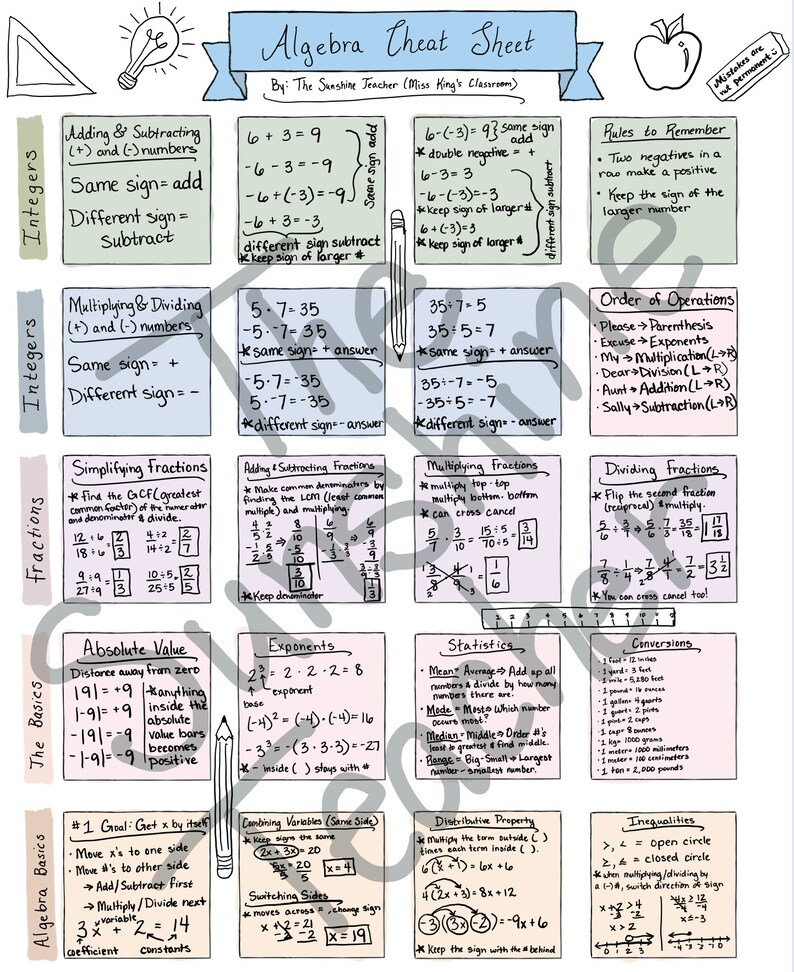 Algebra Cheat Sheet
By: The Sunshine Teacher (Miss King's Classroom)
Mistakes are
not permanent
Integers
Adding & Subtracting
(+) and (-) numbers
Same sign = add
Different sign =
subtract
6 + 3 = 9
-6 - 3 = -9
-6 + (-3) = -9
-6 + 3 = -3
Same sign add
different sign subtract
*keep sign of larger #
6 - (-3) = 9} same sign
add
* double negative = +
6 - 3 = 3
-6 - (-3) = -3
*keep sign of larger #
6 + (-3) = 3
*keep sign of larger #
different sign subtract
Rules to Remember
• Two negatives in a
row make a positive
• Keep the sign of the
larger number
Integers
Multiplying & Dividing
(+) and (-) numbers
Same sign = +
Different sign = -
5 · 7 = 35
-5 · -7 = 35
*same sign = + answer
-5 · 7 = -35
5 · -7 = -35
*different sign = - answer
35 ÷ 7 = 5
35 ÷ 5 = 7
*same sign = + answer
35 ÷ -7 = -5
-35 ÷ 5 = -7
*different sign = - answer
Order of Operations
• Please → Parenthesis
• Excuse → Exponents
• My → Multiplication (L→R)
• Dear → Division (L→R)
• Aunt → Addition (L→R)
• Sally → Subtraction (L→R)
Fractions
Simplifying Fractions
* find the GCF (greatest
common factor) of the numerator
and denominator & divide.
12 ÷ 6 = 2 4 ÷ 2 = 2
18 ÷ 6 3 14 ÷ 2 7
9 ÷ 9 = 1 10 ÷ 5 = 2
27 ÷ 9 3 25 ÷ 5 5
Adding & Subtracting Fractions
* Make common denominators by
finding the LCM (least common
multiple) and multiplying.
*Keep denominator
Multiplying Fractions
* multiply top · top
multiply bottom · bottom
* can cross cancel
5/7 · 3/10 = 15 ÷ 5/70 ÷ 5 = 3/14
3/8 4/9 = 1/6
Dividing Fractions
* Flip the second fraction
(reciprocal) & multiply.
5/6 ÷ 3/7 → 5/6 · 7/3 = 35/18 = 1 17/18
7/8 ÷ 1/4 → 7/8 · 4/1 = 7/2 = 3 1/2
* You can cross cancel too!
1 2 3 4 5 6 7 8 9
The Basics
Absolute Value
Distance away from zero
|9| = +9
|-9| = +9
-|9| = -9
-|-9| = -9
*anything
inside the
absolute
value bars
becomes
positive
Exponents
2³ = 2 · 2 · 2 = 8
exponent
base
(-4)² = (-4) · (-4) = 16
-3³ = -(3 · 3 · 3) = -27
* - inside ( ) stays with #
Statistics
• Mean = Average → Add up all
numbers & divide by how many
numbers there are.
• Mode = Most → Which number
occurs most?
• Median = Middle → Order #'s
least to greatest & find middle.
• Range = Big - Small → Largest
number - smallest number.
Conversions
• 1 foot = 12 inches
• 1 yard = 3 feet
• 1 mile = 5,280 feet
• 1 pound = 16 ounces
• 1 gallon = 4 quarts
• 1 quart = 2 pints
• 1 pint = 2 cups
• 1 cup = 8 ounces
• 1 kg = 1000 grams
• 1 meter = 1000 millimeters
• 1 meter = 100 centimeters
• 1 ton = 2,000 pounds
Algebra Basics
#1 Goal: Get x by itself
• Move x's to one side
• Move #'s to other side
→ Add/Subtract first
→ Multiply/Divide next
variable
3x + 2 = 14
coefficient constants
Combining Variables (Same Side)
* Keep signs the same
(2x + 3x) = 20
5x = 20
5 5
x = 4
Switching Sides
* moves across = , change sign
x + 2 = 21
-2 -2
x = 19
Distributive Property
* Multiply the term outside ( )
times each term inside ( ).
6(x + 1) = 6x + 6
4(2x + 3) = 8x + 12
-3(3x - 2) = -9x + 6
* Keep the sign with the # behind
Inequalities
>, < = open circle
≥, ≤ = closed circle
*when multiplying/dividing
by a (-) #, switch direction of sign
x + 2 > 4
-2 -2
x > 2
-4x ≥ 12
-4 -4
x ≤ -3
0 1 2 3
-4 -3 -2 -1 0
The
Sunshine
Teacher